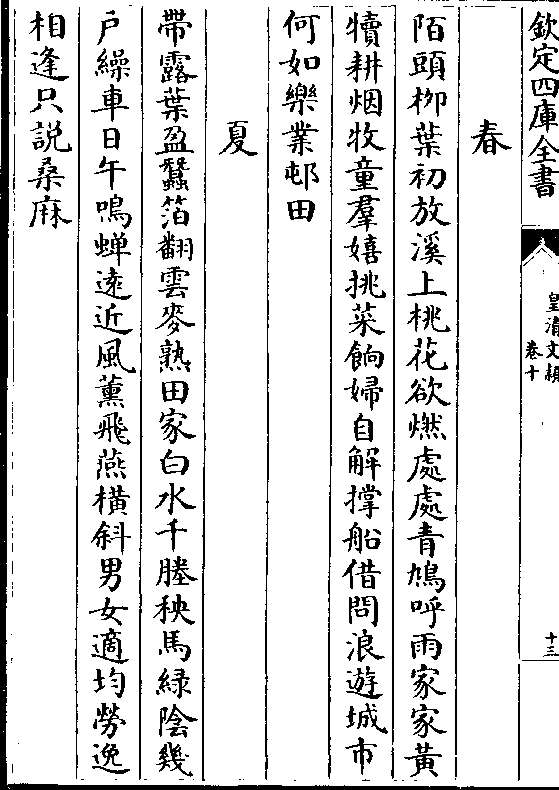 欽定四庫全書
皇清文穎
卷十
十三
春
陌頭柳葉初放溪上桃花欲燃處處青鳩呼雨家家黃
犢耕烟牧童羣嬉挑菜餉婦自解撐船借問浪遊城市
何如樂業邨田
夏
帶露葉盈蠶箔翻雲麥熟田家白水千塍秧馬綠陰幾
戶繰車日午鳴蟬遠近風薰飛燕橫斜男女適均勞逸
相逢只說桑麻